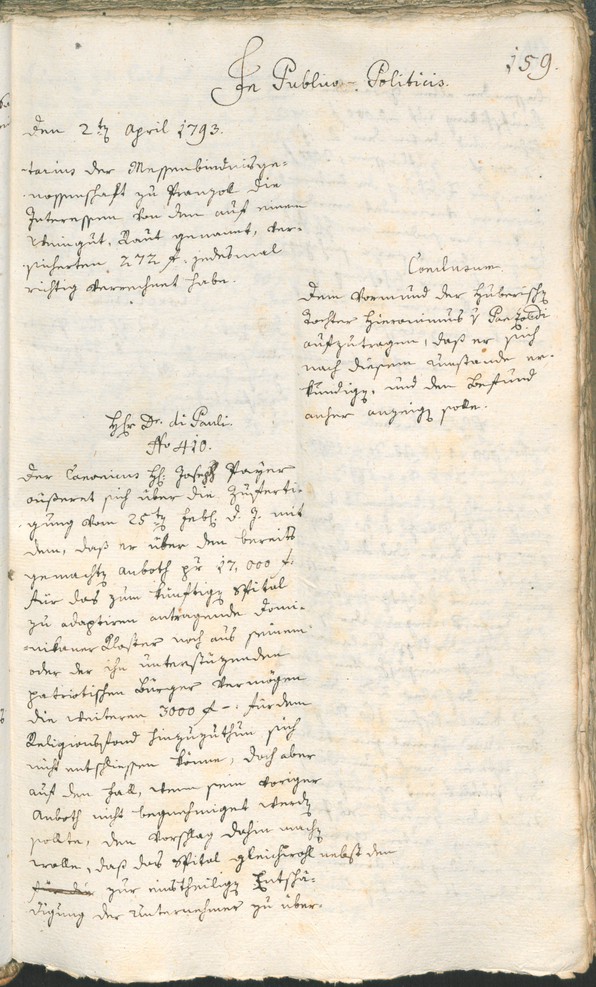 159.
In Publico-Politicis.
Den 2ten April 1793.
-tarius der Messenbündnisge-
-nossenschaft zu Branzoll die
Interessen von dem auf einem
Weingut, Raut genannt, ver-
-sicherten 272 f. jedesmal
richtig verrechnet habe.
Conclusum
Dem Vormund der Huberischen
Tochter Hieronimus v
aufzutragen, daß er sich
nach diesem Umstande er-
kundigen, und den Befund
anher anzeigen solle.
Hhr Dr. di Pauli.
No 410.
Der Canonicus Hr. Joseph Payer
äußeret sich über die Zuferti-
-gung vom 25ten Febr. d. J. mit
dem, daß er über den bereits
gemachten Anboth pr 17,000 f.
für das zum künftigen Spital
zu adaptiren antragende Domi-
-nikaner Kloster noch aus seinem
oder der ihn unterstüzenden
patriotischen Bürger Vermögen
die weiteren 3000 f. für dem
Religionsfond hinzuzuthun sich
nicht entschliessen könne, doch aber
auf den Fall, wenn sein voriger
Anboth nicht begnehmiget werden
sollte, den Vorschlag dahin machen
wolle, daß das Spital gleichwohl nebst dem
für die zur einstheiligen Entschä-
digung der Unternehmer zu über-